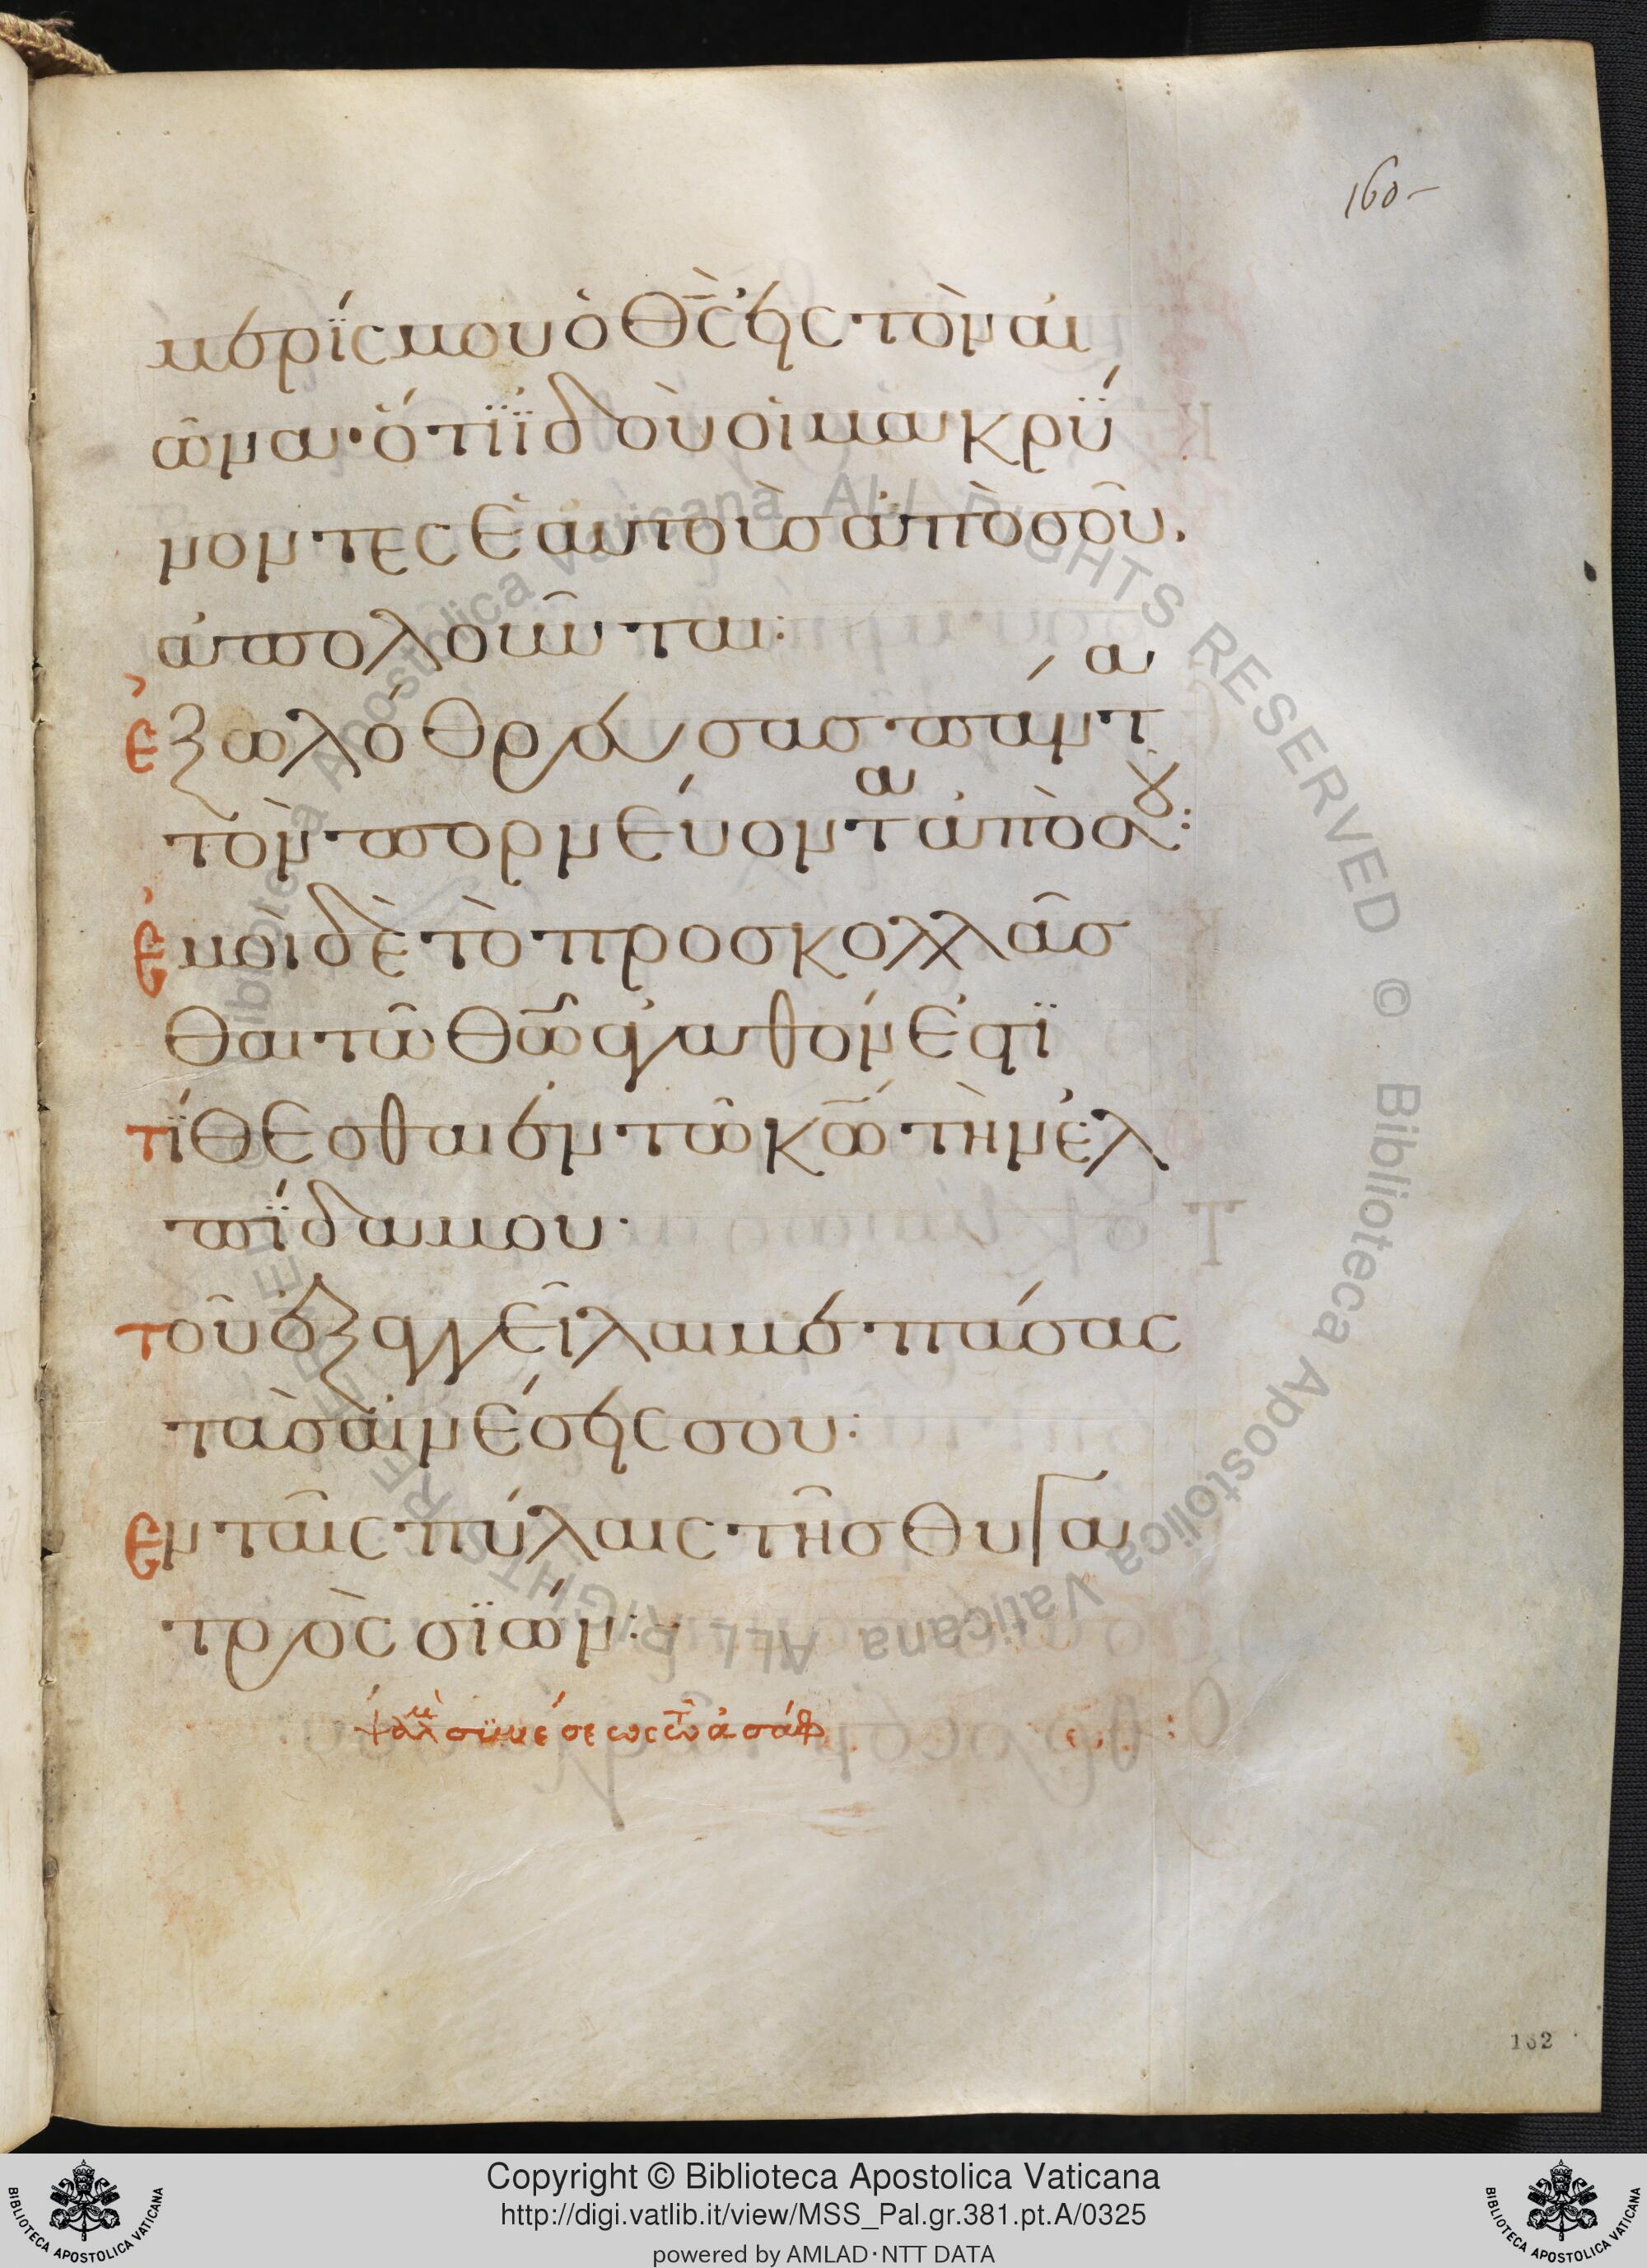 160
μερίς μου ὁ θ̅ς̅ εἰς τὸν αἰ
ῶνα· ὅτι ἰδοὺ οἱ μακρύ
νοντες ἑαυτοὺσ ἀπὸ σοῦ,
ἀπολοῦνται:
ἐξωλόθρευσασ πάντα
τὸν πορνεύοντα ἀπὸ σοῦ:
ἐμοὶ δὲ τὸ προσκολλᾶσ
θαι τῶ θ̅ω̅ ἀγαθόν ἐστι
τίθεσθαι ἐν τῶ κ̅ω̅ τὴν ἐλ
πίδα μου·
τοῦ ἐξαγγεῖλαι με πάσας
τὰσ αἰνέσεις σου:
ἐν ταῖς πύλαις τῆσ θυγα
τρὸς σιών:
ψαλμὸ συνέσεως τῶ ἀσάφ
162
© Biblioteca Apostolica Vaticana ALL RIGHTS RESERVED © Biblioteca Apostolica Vaticana ALL RIGHTS RESERVED
BIBLIOTECA APOSTOLICA VATICANA
Copyright © Biblioteca Apostolica Vaticana
http://digi.vatlib.it/view/MSS_Pal.gr.381.pt.A/0325
powered by AMLAD·NTT DATA
BIBLIOTECA APOSTOLICA VATICANA